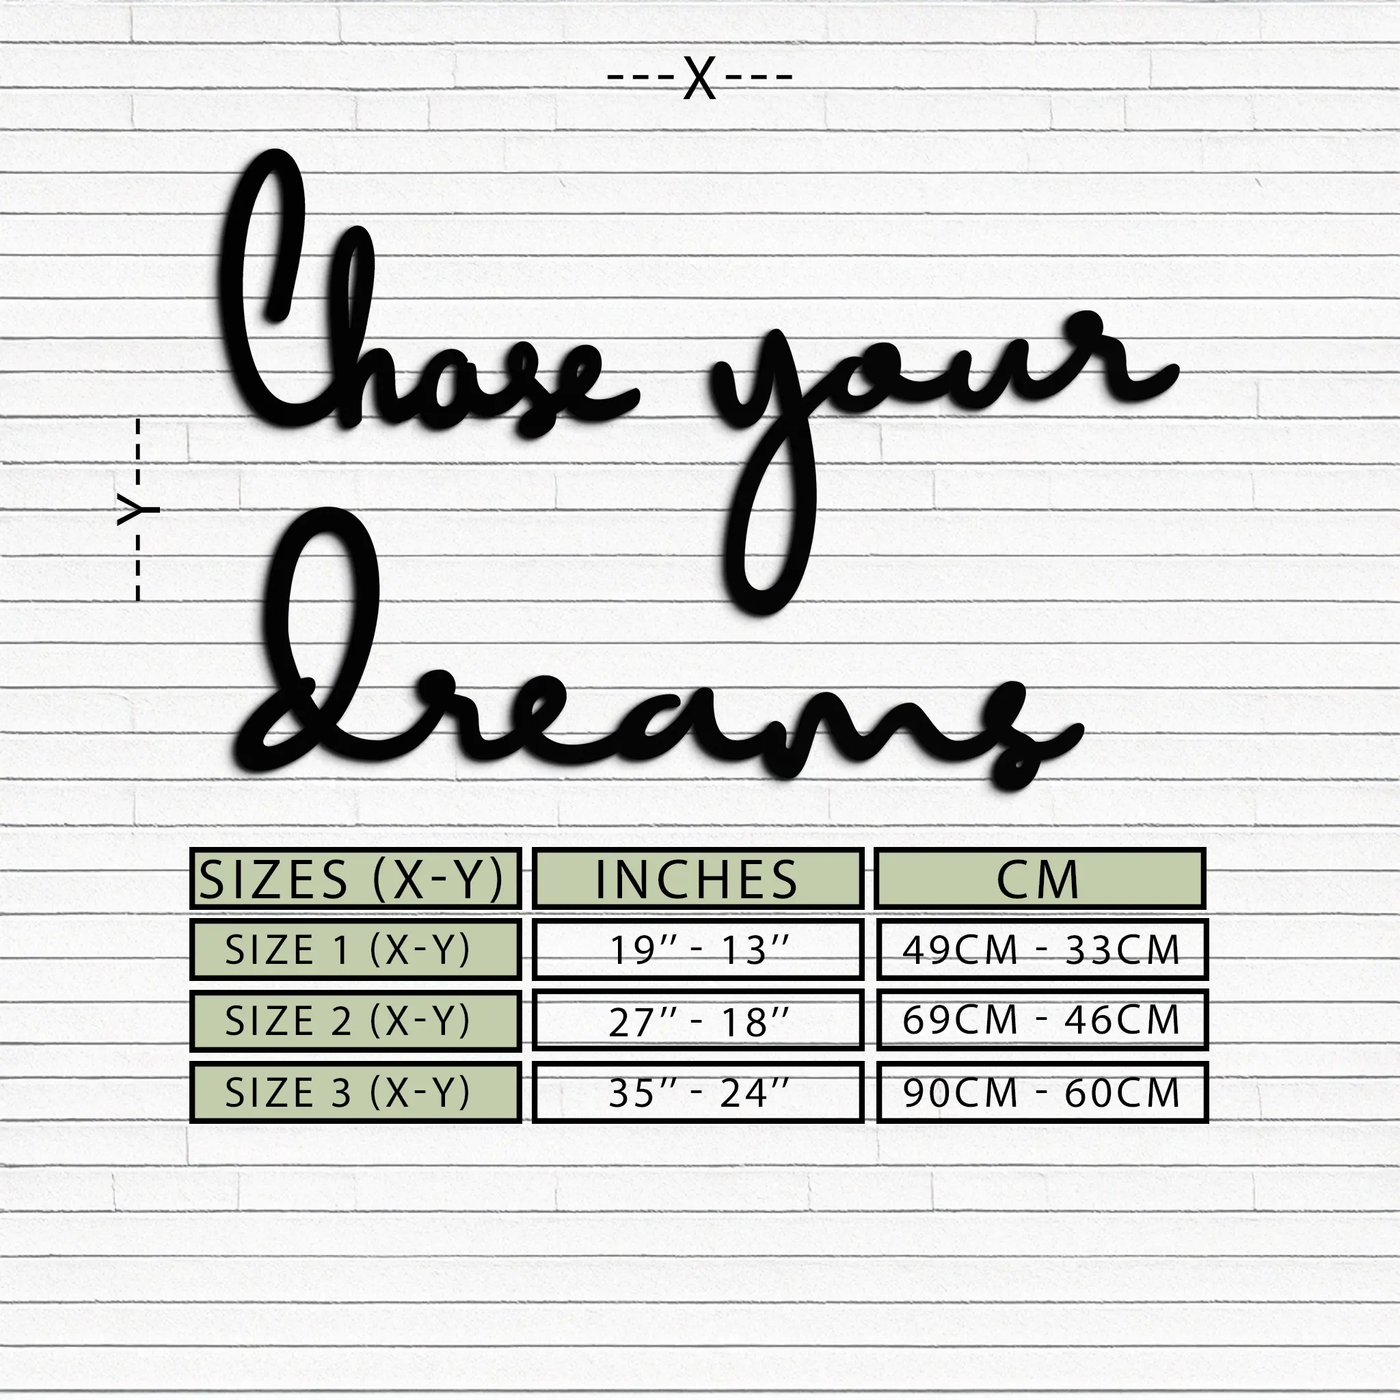 ---X---
Chase your
---Y---
dreams
SIZES (X-Y) INCHES CM
SIZE 1 (X-Y) 19’’ - 13’’ 49CM - 33CM
SIZE 2 (X-Y) 27’’ - 18’’ 69CM - 46CM
SIZE 3 (X-Y) 35’’ - 24’’ 90CM - 60CM